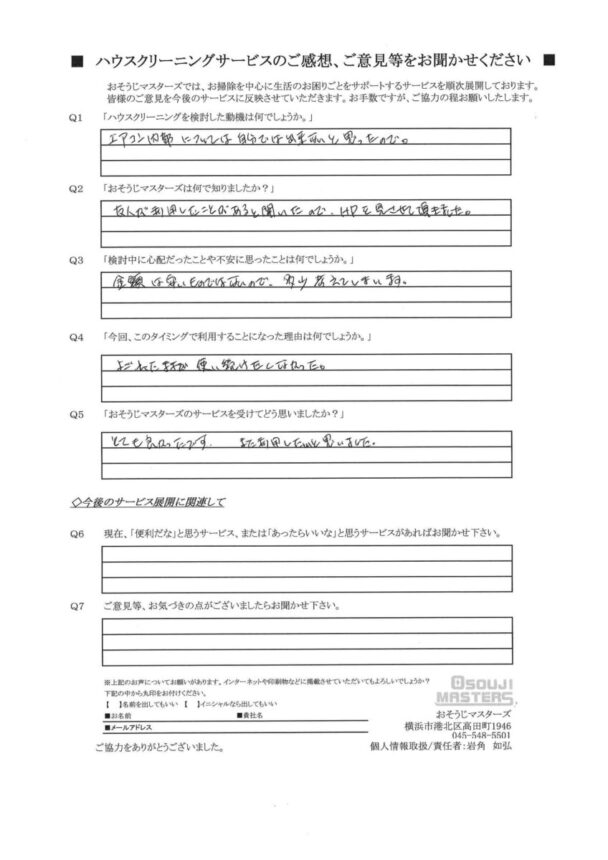 ■ ハウスクリーニングサービスのご感想、ご意見等をお聞かせください ■
おそうじマスターズでは、お掃除を中心に生活のお困りごとをサポートするサービスを順次展開しております。
皆様のご意見を今後のサービスに反映させていただきます。お手数ですが、ご協力の程お願いしたします。
Q1 「ハウスクリーニングを検討した動機は何でしょうか。」
エアコン内部については自分では出来ないと思ったので。
Q2 「おそうじマスターズは何で知りましたか？」
友人が利用したことがあると聞いたので、HPを見させて頂きました。
Q3 「検討中に心配だったことや不安に思ったことは何でしょうか。」
金額は安いものではないので、多少考えてしまいます。
Q4 「今回、このタイミングで利用することになった理由は何でしょうか。」
よごれたまま使い続けたくなかった。
Q5 「おそうじマスターズのサービスを受けてどう思いましたか？」
とても良かったです。 また利用したいと思いました。
◇今後のサービス展開に関連して
Q6 現在、「便利だな」と思うサービス、または「あったらいいな」と思うサービスがあればお聞かせ下さい。
Q7 ご意見等、お気づきの点がございましたらお聞かせ下さい。
※上記のお声についてお願いがあります。インターネットや印刷物などに掲載させていただいてもよろしいでしょうか？
下記の中から丸印をお付けください。
【 】名前を出してもいい 【 】イニシャルなら出してもいい
■お名前 ■貴社名
■メールアドレス
ご協力をありがとうございました。
OSOUJI
MASTERS
おそうじマスターズ
横浜市港北区高田町1946
045-548-5501
個人情報取扱/責任者:岩角 如弘